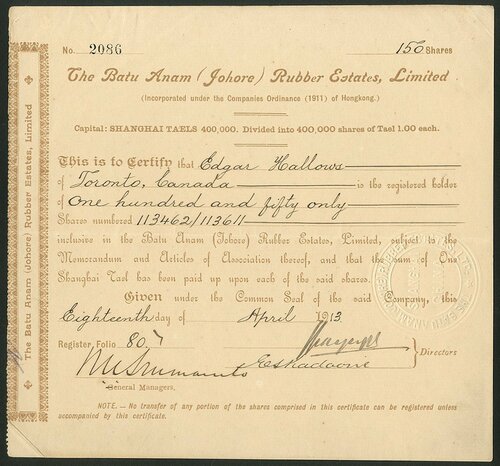 No. 2086 150 Shares
The Batu Anam (Johore) Rubber Estates, Limited
(Incorporated under the Companies Ordinance (1911) of Hongkong.)
Capital: SHANGHAI TAELS 400,000. Divided into 400,000 shares of Tael 1.00 each.
This is to Certify that Edgar Hallows
of Toronto, Canada is the registered holder
of One hundred and fifty only
Shares numbered 113462/113611
inclusive in the Batu Anam (Johore) Rubber Estates, Limited, subject to the
Memorandum and Articles of Association thereof, and that the sum of One
Shanghai Tael has been paid up upon each of the said shares.
Given under the Common Seal of the said Company, this
Eighteenth day of April 1913
Register Folio 80
Directors
General Managers,
NOTE. — No transfer of any portion of the shares comprised in this certificate can be registered unless
accompanied by this certificate.
The Batu Anam (Johore) Rubber Estates, Limited